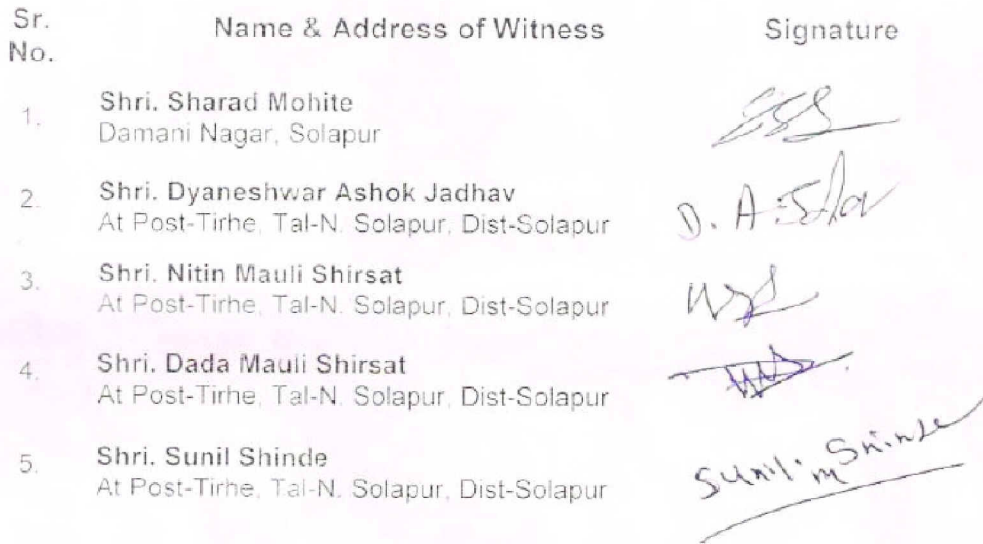 Sr. No. Name & Address of Witness Signature
1. Shri. Sharad Mohite
Damani Nagar, Solapur
2. Shri. Dyaneshwar Ashok Jadhav
At Post-Tirhe, Tal-N. Solapur, Dist-Solapur
D. A
3. Shri. Nitin Mauli Shirsat
At Post-Tirhe, Tal-N. Solapur, Dist-Solapur
4. Shri. Dada Mauli Shirsat
At Post-Tirhe, Tal-N. Solapur, Dist-Solapur
5. Shri. Sunil Shinde
At Post-Tirhe, Tal-N. Solapur, Dist-Solapur
Sunil m Shinde